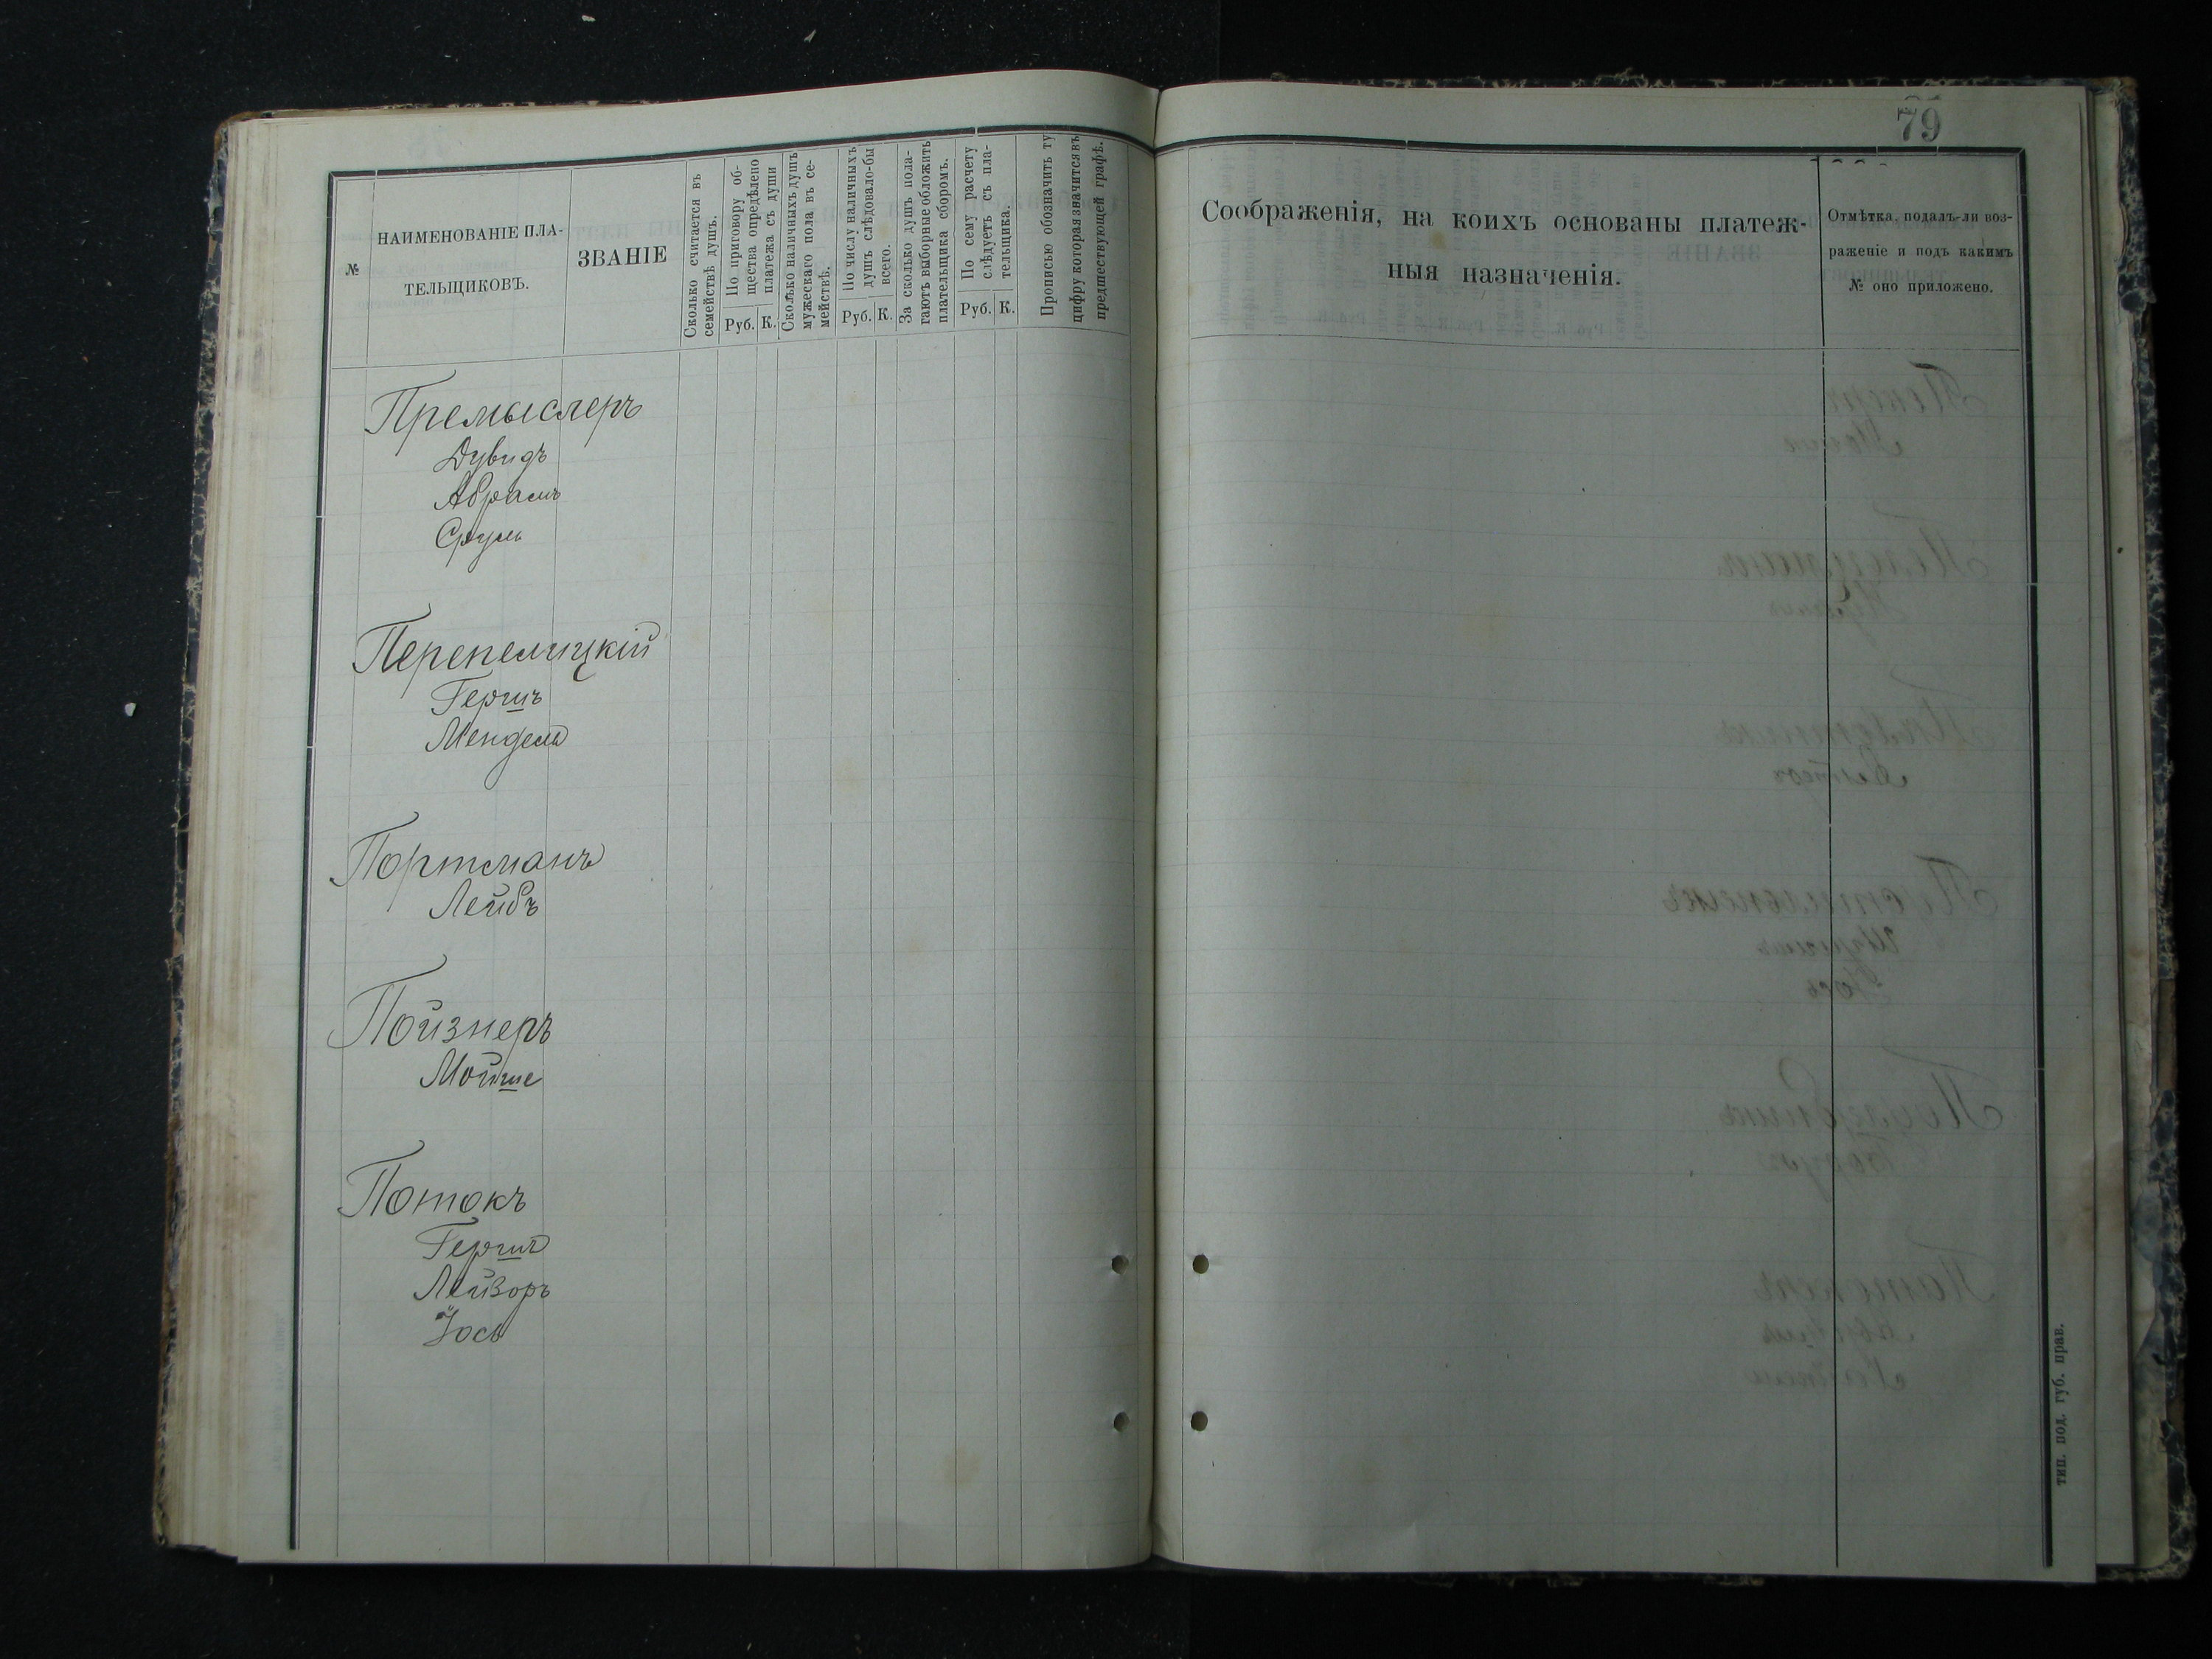 79
№
НАИМЕНОВАНІЕ ПЛА-
ТЕЛЬЩИКОВЪ.
ЗВАНІЕ
Сколько считается въ
семействѣ душъ.
По приговору об-
щества опредѣлено
платежа съ души
Руб. К.
Сколько наличныхъ душъ
мужескаго пола въ се-
мействѣ.
По числу наличныхъ
душъ слѣдовало-бы
всего.
Руб. К.
За сколько душъ пола-
гаютъ выборные обложить
плательщика сборомъ.
По сему расчету
слѣдуетъ съ пла-
тельщика.
Руб. К.
Прописью обозначить ту
цифру которая значится въ
предшествующей графѣ.
Соображенія, на коихъ основаны платеж-
ныя назначенія.
Отмѣтка, подалъ-ли воз-
раженіе и подъ какимъ
№ оно приложено.
Премыслеръ
Дувидъ
Абрамъ
Сруль
Перепелицкій
Гершъ
Мендель
Портманъ
Лейбъ
Пойзнеръ
Мойше
Потокъ
Гершъ
Лейзоръ
Іось
тип. под. губ. прав.